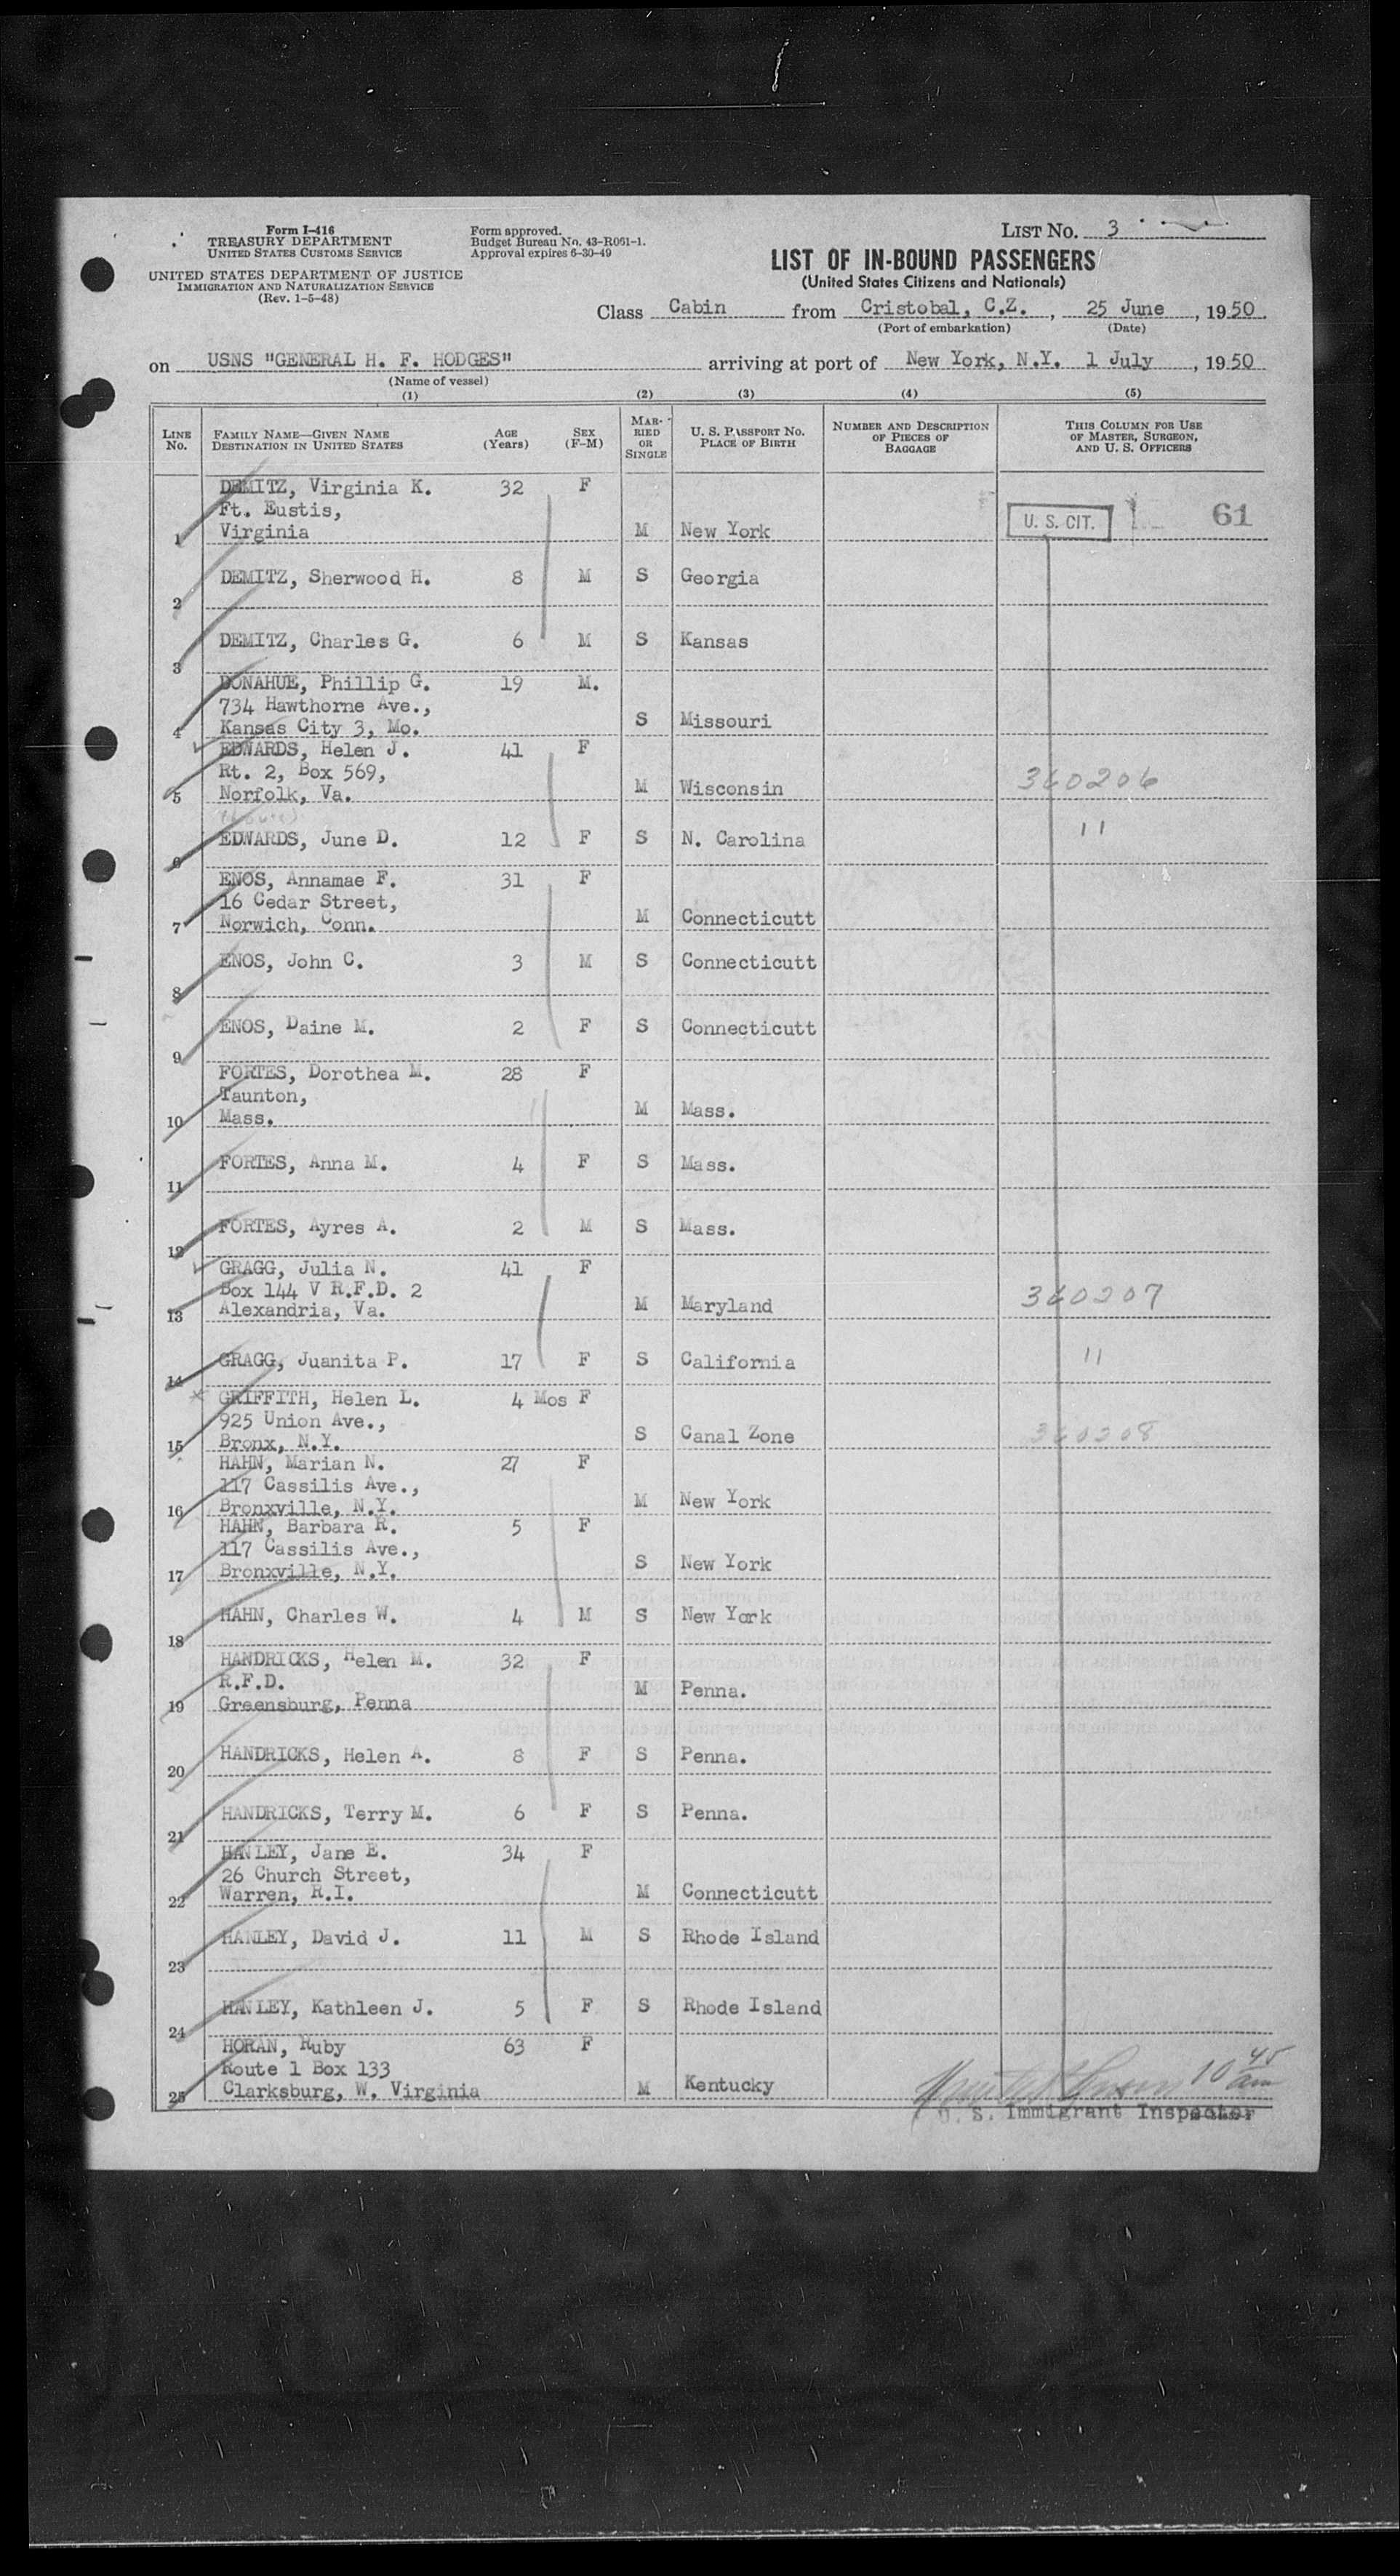 Form I-416
TREASURY DEPARTMENT
UNITED STATES CUSTOMS SERVICE
UNITED STATES DEPARTMENT OF JUSTICE
IMMIGRATION AND NATURALIZATION SERVICE
(Rev. 1-5-48)
Form approved.
Budget Bureau No. 43-R061-1.
Approval expires 6-30-49
LIST No. 3
LIST OF IN-BOUND PASSENGERS
(United States Citizens and Nationals)
Class Cabin from Cristobal, C.Z. , 25 June , 1950.
(Port of embarkation) (Date)
on USNS "GENERAL H. F. HODGES" arriving at port of New York, N.Y. 1 July , 1950
(Name of vessel)
(1) (2) (3) (4) (5)
LINE No. FAMILY NAME—GIVEN NAME DESTINATION IN UNITED STATES AGE (Years) SEX (F-M) MARRIED OR SINGLE U. S. PASSPORT No. PLACE OF BIRTH NUMBER AND DESCRIPTION OF PIECES OF BAGGAGE THIS COLUMN FOR USE OF MASTER, SURGEON, AND U. S. OFFICERS
DEMITZ, Virginia K. 32 F
Ft. Eustis, U. S. CIT. 61
1 Virginia M New York
DEMITZ, Sherwood H. 8 M S Georgia
2
DEMITZ, Charles G. 6 M S Kansas
3
DONAHUE, Phillip G. 19 M.
734 Hawthorne Ave.,
4 Kansas City 3, Mo. S Missouri
EDWARDS, Helen J. 41 F
Rt. 2, Box 569,
5 Norfolk, Va. M Wisconsin 360206
EDWARDS, June D. 12 F S N. Carolina 11
6
ENOS, Annamae F. 31 F
16 Cedar Street,
7 Norwich, Conn. M Connecticutt
ENOS, John C. 3 M S Connecticutt
8
ENOS, Daine M. 2 F S Connecticutt
9
FORTES, Dorothea M. 28 F
Taunton,
10 Mass. M Mass.
FORTES, Anna M. 4 F S Mass.
11
FORTES, Ayres A. 2 M S Mass.
12
GRAGG, Julia N. 41 F
Box 144 V R.F.D. 2
13 Alexandria, Va. M Maryland 360207
GRAGG, Juanita P. 17 F S California 11
14
GRIFFITH, Helen L. 4 Mos F
925 Union Ave.,
15 Bronx, N.Y. S Canal Zone 360208
HAHN, Marian N. 27 F
117 Cassilis Ave.,
16 Bronxville, N.Y. M New York
HAHN, Barbara R. 5 F
117 Cassilis Ave.,
17 Bronxville, N.Y. S New York
HAHN, Charles W. 4 M S New York
18
HANDRICKS, Helen M. 32 F
R.F.D.
19 Greensburg, Penna M Penna.
HANDRICKS, Helen A. 8 F S Penna.
20
HANDRICKS, Terry M. 6 F S Penna.
21
HANLEY, Jane E. 34 F
26 Church Street,
22 Warren, R.I. M Connecticutt
HANLEY, David J. 11 M S Rhode Island
23
HANLEY, Kathleen J. 5 F S Rhode Island
24
HORAN, Ruby 63 F
Route 1 Box 133
25 Clarksburg, W. Virginia M Kentucky 10 45 am
U. S. Immigrant Inspector